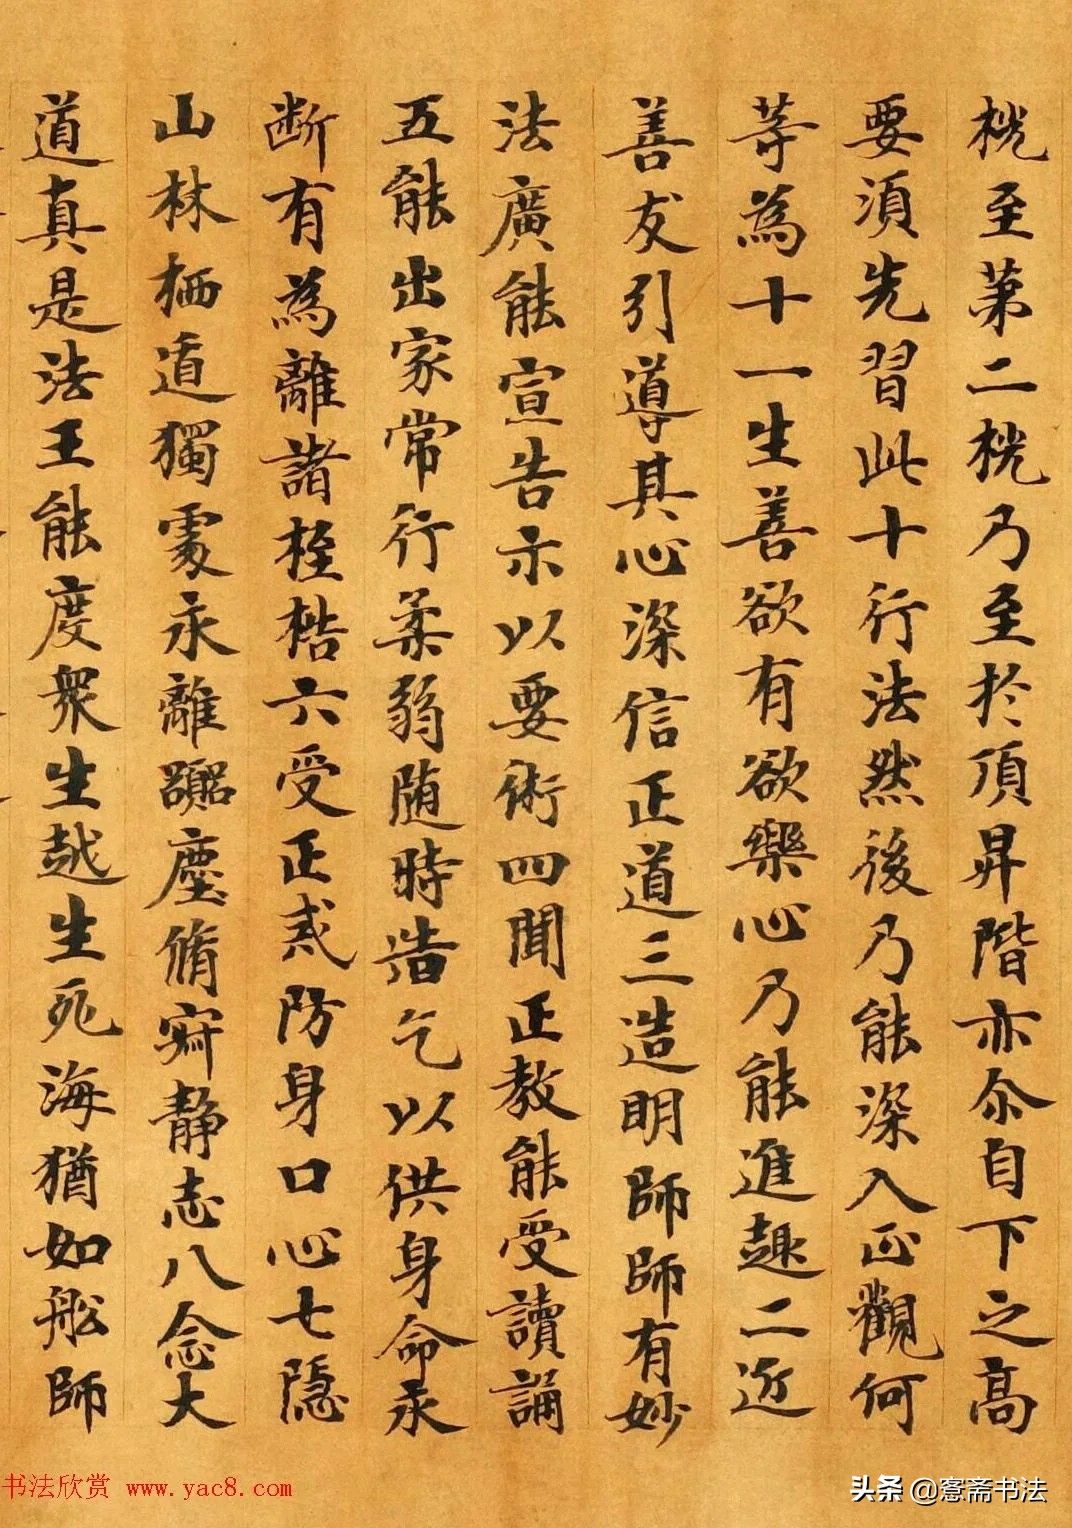 桄至苐二桄乃至於頂昇階亦尒自下之髙
要須先習此十行法然後乃能深入正觀何
等為十一生善欲有欲樂心乃能進趣二近
善友引導其心深信正道三造明師師有妙
法廣能宣告示以要術四聞正教能受讀誦
五能出家常行柔弱随時造乞以供身命永
断有為離諸桎梏六受正戒防身口心七隠
山林栖遁獨處永離嚻塵脩寂静志八念大
道真是法王能度衆生越生死海猶如舩師
书法欣赏 www.yac8.com
头条 @愙斋书法